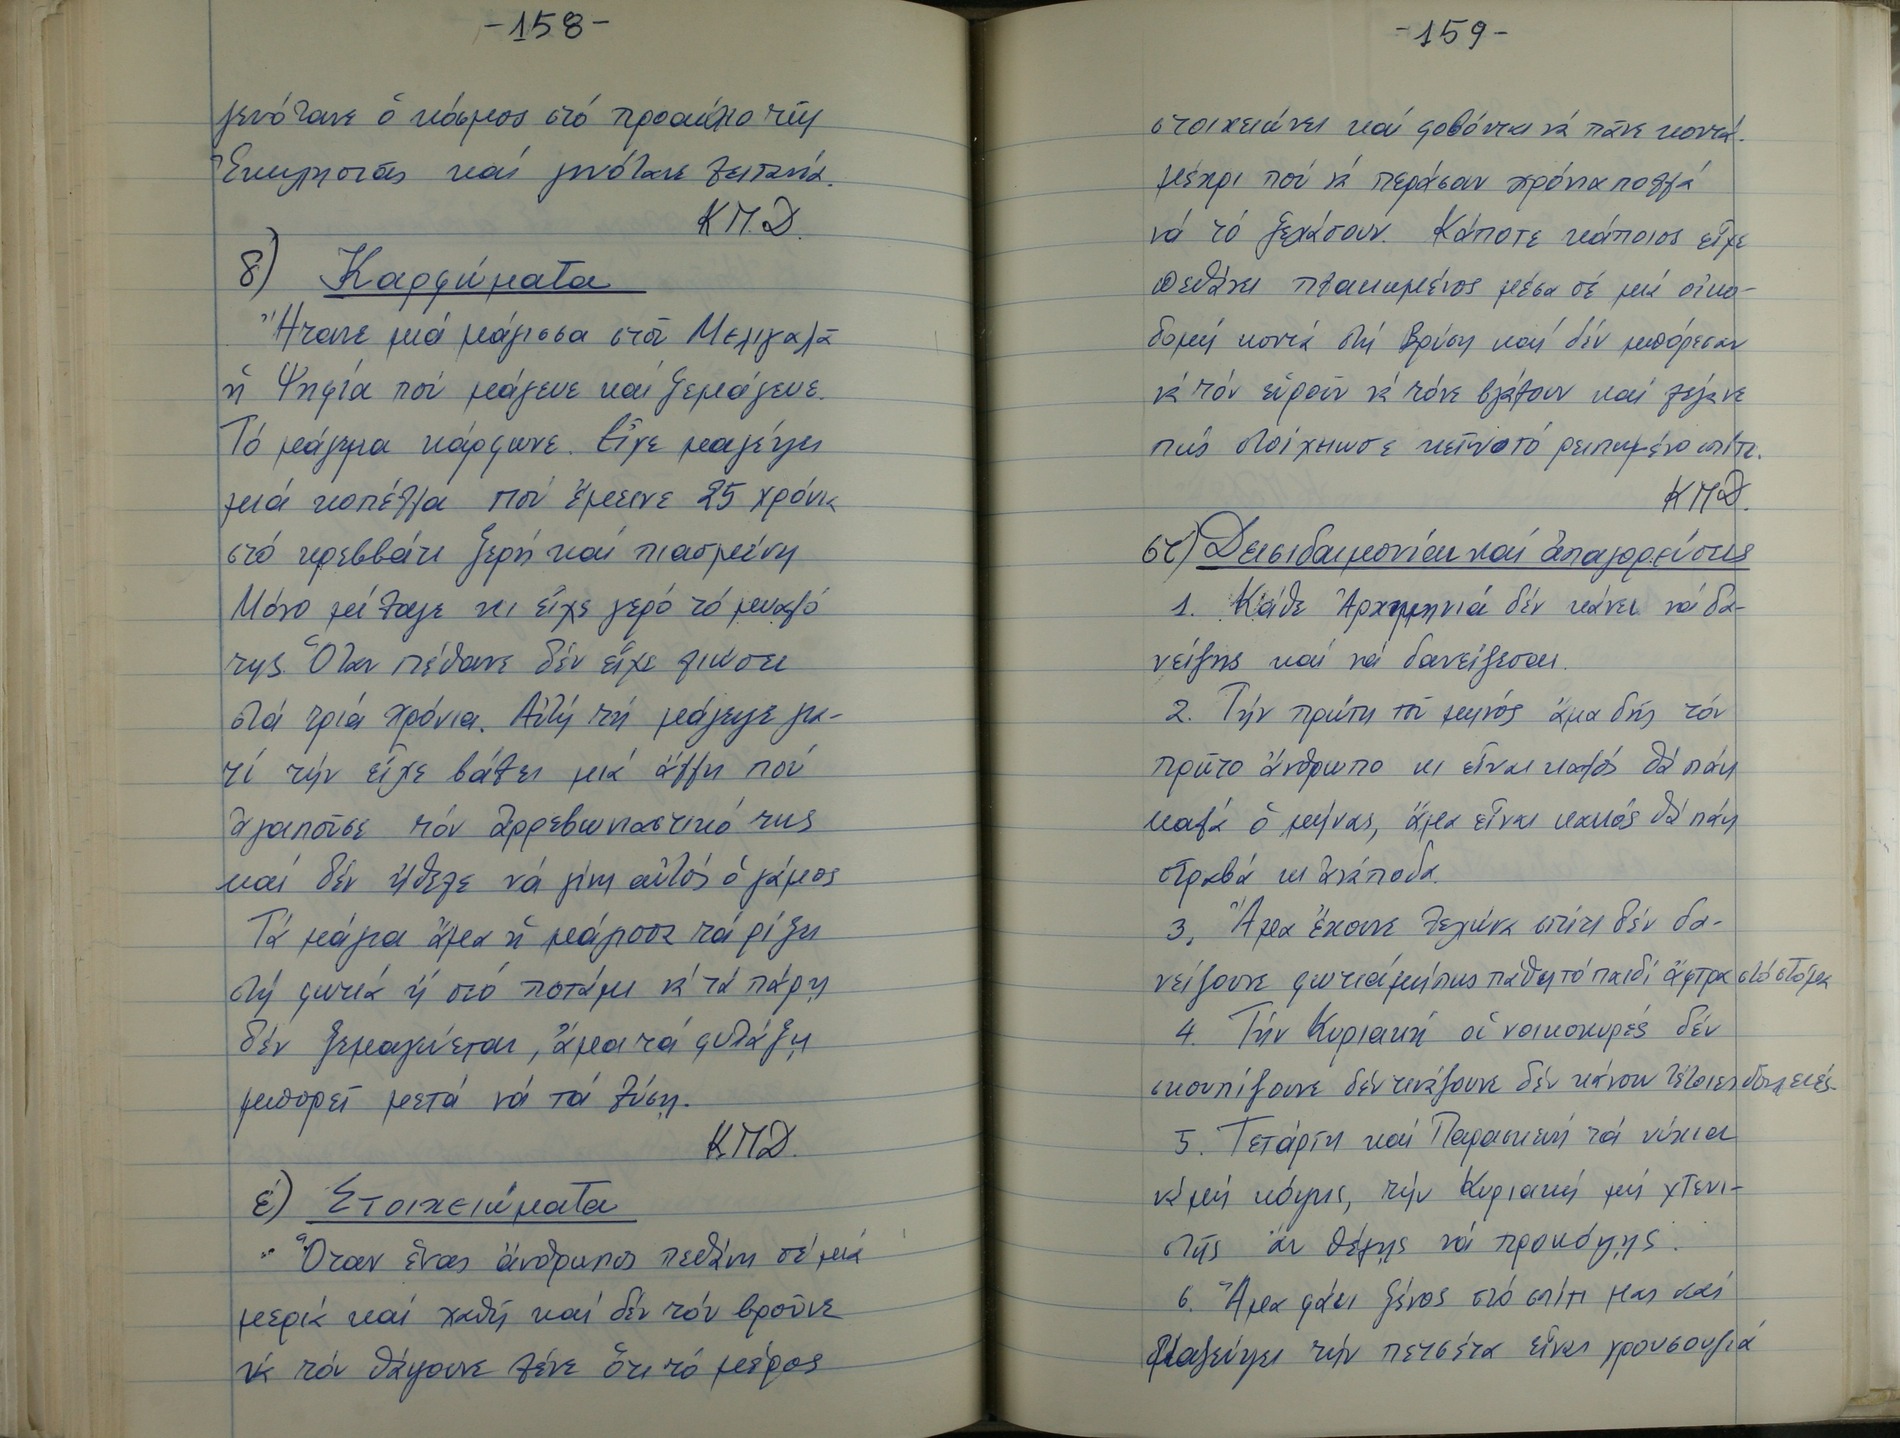 -158-
γενότανε ὁ κόσμος στό προαύλιο τῆς
Ἐκκλησιᾶς καί γινότανε ζειτανιά.
Κ.Π.Δ.
δ) Καρφώματα
Ἤτανε μιά μάγισσα στοῦ Μελιγαλᾶ
ἡ Ψηφία πού μάγευε καί ξεμάγευε.
Τό μάγεμα κάρφωνε. Εἶχε μαγέψει
μιά κοπέλλα πού ἔμεινε 25 χρόνια
στό κρεββάτι ξερή καί πιασμένη
Μόνο μίλαγε κι εἶχε γερό τό μυαλό
της. Ὅταν πέθανε δέν εἶχε λιώσει
στά τρία χρόνια. Αὐτή τή μάγεψε για-
τί τήν εἶχε βάλει μιά ἄλλη πού
ἀγαποῦσε τόν ἀρρεβωνιαστικό της
καί δέν ἤθελε νά γίνη αὐτός ὁ γάμος
Τά μάγια ἅμα ἡ μάγισσα τά ρίξη
στή φωτιά ἤ στό ποτάμι νά τά πάρη
δέν ξεμαγεύεται, ἅμα τά φυλάξη
μπορεῖ μετά νά τά λύση.
Κ.Π.Δ.
ε) Στοιχειώματα
Ὅταν ἕνας ἄνθρωπος πεθάνη σέ μιά
μεριά καί χαθῆ καί δέν τόν βροῦνε
νά τόν θάψουνε λένε ὅτι τό μέρος
-159-
στοιχειώνει καί φοβόνται νά πᾶνε κοντά.
μέχρι πού νά περάσαν χρόνια πολλά
νά τό ξεχάσουν. Κάποτε κάποιος εἶχε
πεθάνει πλακωμένος μέσα σέ μιά οἰκο-
δομή κοντά στή βρύση καί δέν μπόρεσαν
νά τόν εὑροῦν νά τόνε βγάλουν καί λέγανε
πώς στοίχειωσε κεῖνο τό ρειπωμένο σπίτι.
Κ.Π.Δ.
στ) Δεισιδαιμονίαι καί ἀπαγορεύσεις
1. Κάθε Ἀρχιμηνιά δέν κάνει νά δα-
νείζης καί νά δανείζεσαι.
2. Τήν πρώτη τοῦ μηνός ἅμα δῆς τόν
πρῶτο ἄνθρωπο κι εἶναι καλός θά πάη
καλά ὁ μήνας, ἅμα εἶναι κακός θά πάη
στραβά κι ἀνάποδα.
3. Ἅμα ἔχουνε λεχώνα σπίτι δέν δα-
νείζουνε φωτιά μήπως πάθη τό παιδί ἄφτρα στό στόμα
4. Τήν Κυριακή οἱ νοικοκυρές δέν
σκουπίζουνε δέν τινάζουνε δέν κάνουν τέτοιες δουλειές.
5. Τετάρτη καί Παρασκευή τά νύχια
νά μή κόψης, τήν Κυριακή μή χτενι-
στῆς ἄν θέλης νά προκόψης.
6. Ἅμα φάει ξένος στό σπίτι μας καί
τήν πετσέτα εἶναι γρουσουζιά